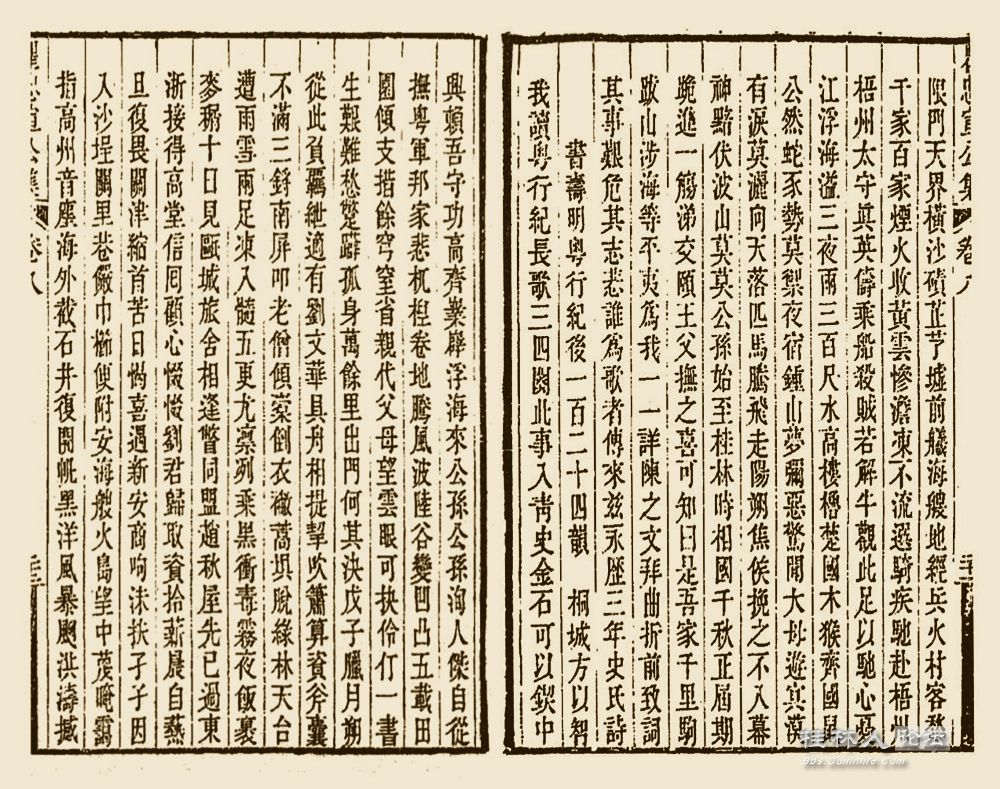 限門天界橫沙磧芷艼墟前艤海艘地經兵火村客愁
千家百家煙火收黃雲慘澹凍不流選騎疾馳赴梧州
梧州太守真英儔乘船殺賊若解牛觀此足以馳心憂
江浮海溢三夜雨三百尺水高樓櫓楚國木猴齊國鼠
公然蛇豕勢莫禦夜宿鍾山夢彌惡驚聞大母遊冥漠
有淚莫灑向天落匹馬騰飛走陽朔焦侯挽之不入幕
神黯伏波山莫莫公孫始至桂林時相國千秋正屆期
跪進一觴涕交頤王父撫之喜可知曰是吾家千里駒
跋山涉海等平夷為我一一詳陳之文拜曲折前致詞
其事艱危其志悲誰為歌者傳來茲永歷三年史氏詩
書壽明粵行紀後一百二十四韻 桐城方以智
我讀粵行紀長歌三四闋此事入青史金石可以鍥中
卷八
興賴吾守功高齊嶪嶭浮海來公孫公孫洵人傑自從
撫粵軍邦家悲杌桯卷地騰風波陸谷變凹凸五載田
園傾支措餘穹窒省親代父母望雲眼可抉伶仃一書
生艱難愁蹩躃孤身萬餘里出門何其決戊子臘月朔
從此負羈紲適有劉文華具舟相提挈吹簫算資斧囊
不滿三鍰南屏叩老僧傾橐倒衣襒蒿埧脫綠林天台
遭雨雪兩足凍入髓五更尤凜冽乘黑衝毒霧夜飯裹
麥稰十日見甌城旅舍相逢瞥同盟趙秋屋先已過東
浙接得高堂信囘顧心惙惙劉君歸取資拾薪晨自爇
旦復畏關津縮首苦日惝喜遇新安商呴沫扶孑孑因
入沙埕關里巷儼巾櫛便附安海艘火島望中蔑晻靄
指高州音塵海外截石井復開帆黑洋風暴颲洪濤撼
卷八
桂林人论坛
Bbs.Guilinlife.Com